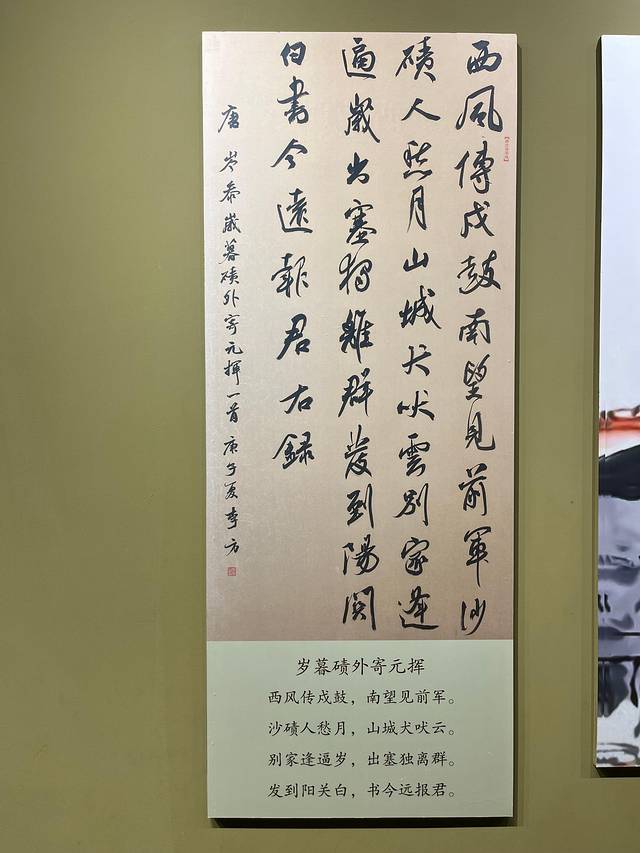 西風傳戍鼓南望見前軍沙
磧人愁月山城犬吠雲別家逢
逼歲出塞獨離群發到陽関
白書今遠報君右録
唐岑參歲暮磧外寄元揮一首庚子夏李方
岁暮碛外寄元挥
西风传戍鼓，南望见前军。
沙碛人愁月，山城犬吠云。
别家逢逼岁，出塞独离群。
发到阳关白，书今远报君。